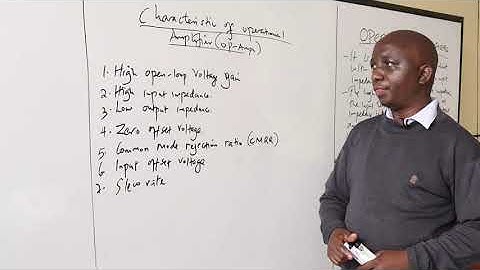 Characteristic of operational
Amplifier (OP-Amp)
1. High open-loop voltage gain
2. High input impedance.
3. Low output impedance.
4. Zero offset voltage
5. Common mode rejection ratio (CMRR)
6. Input offset voltage
7. Slew rate